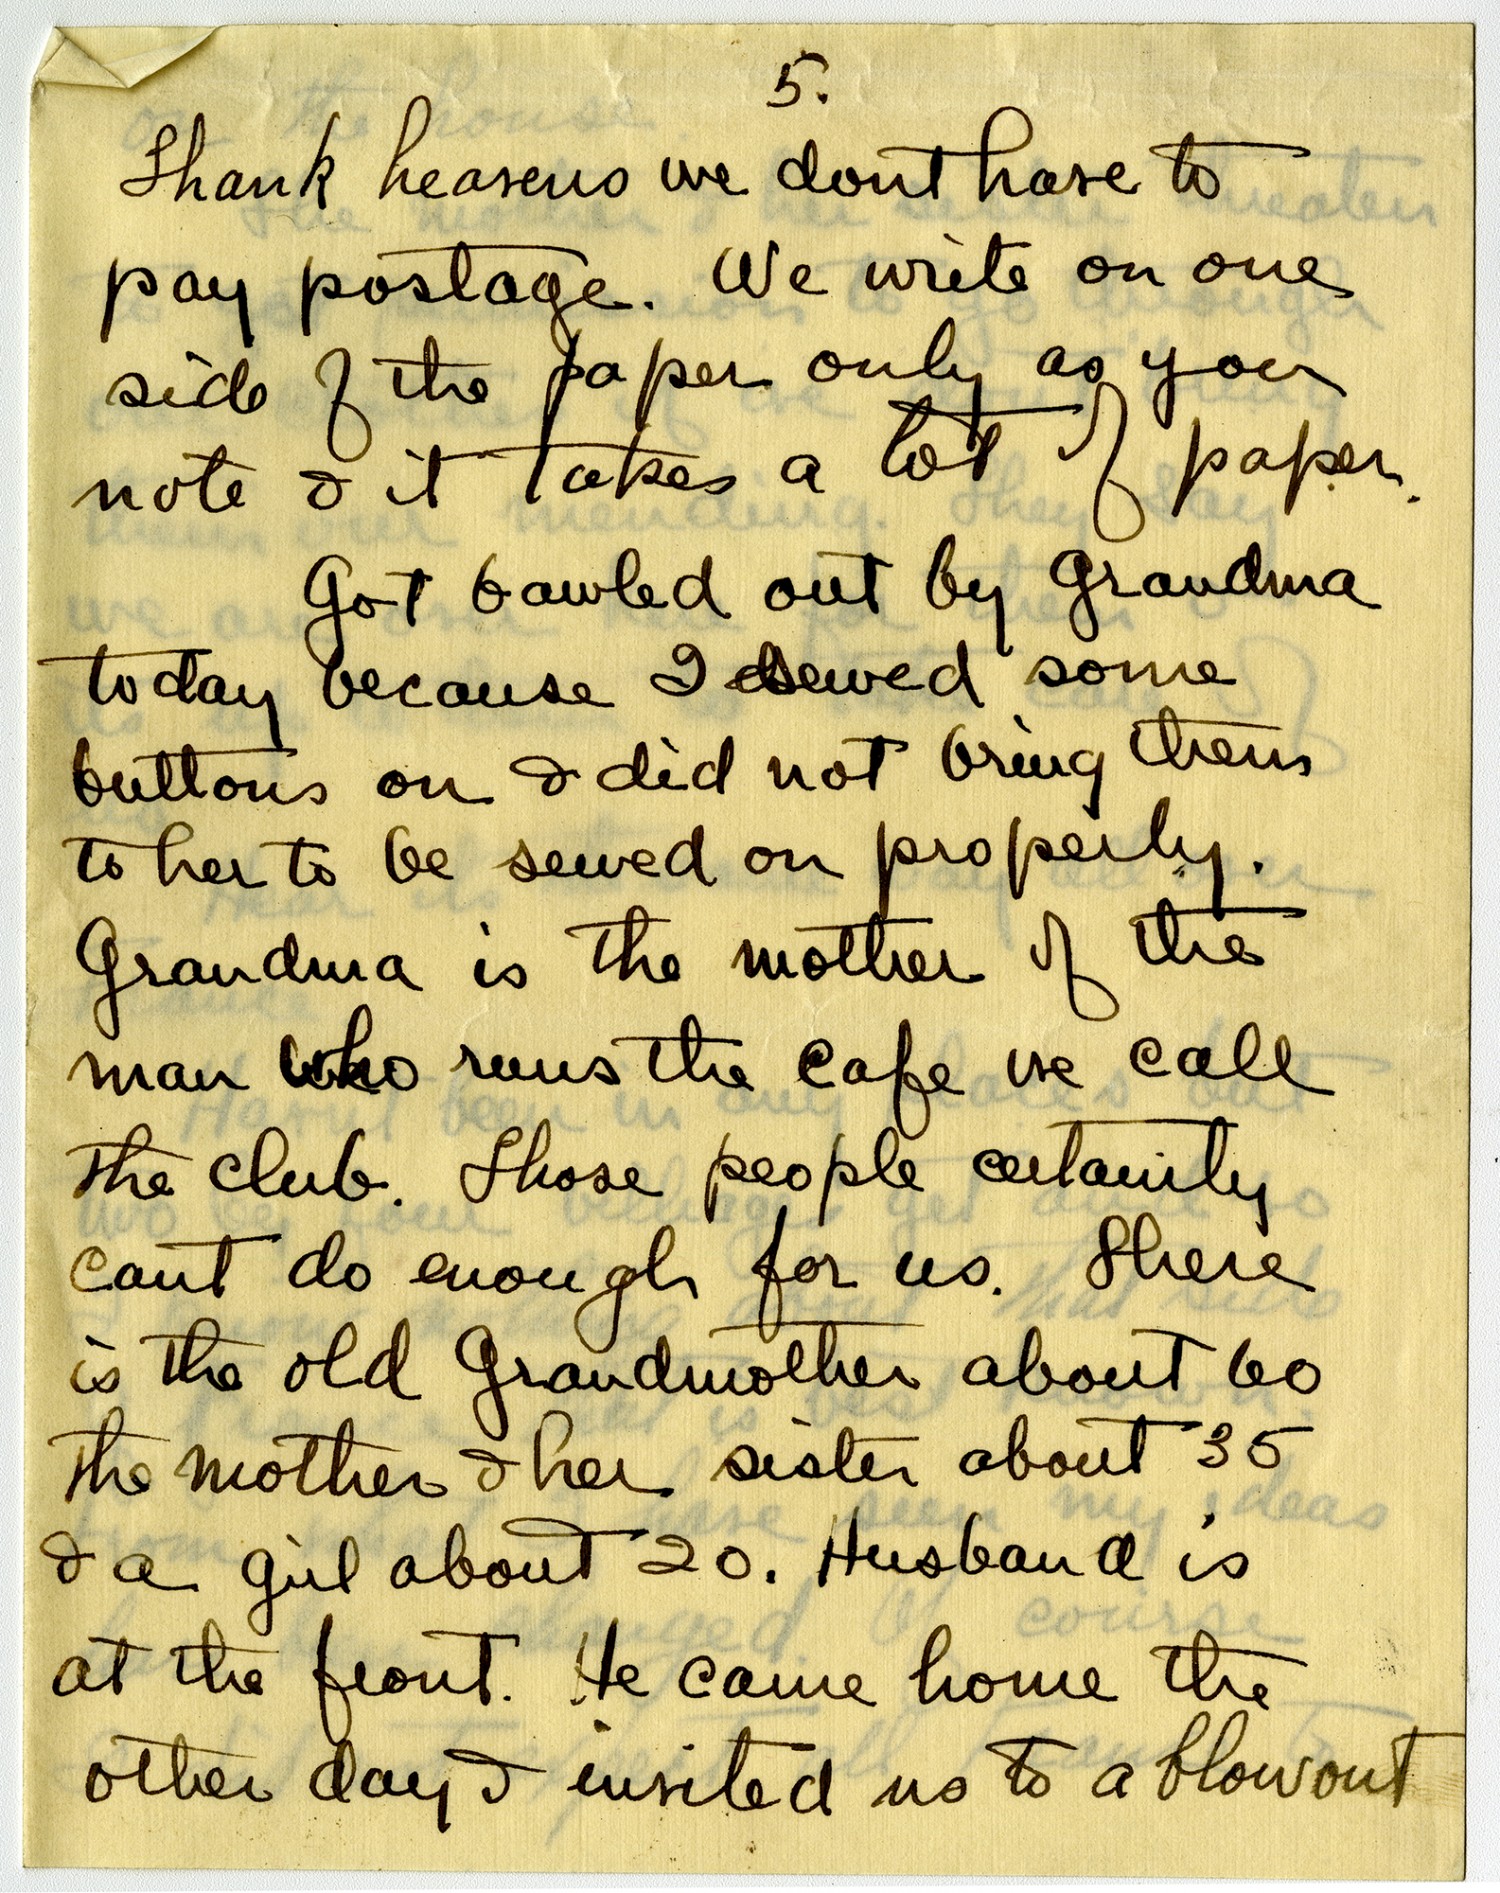 5.
Thank heavens we dont have to
pay postage. We write on one
side of the paper only as you
note & it takes a lot of paper.
Got bawled out by Grandma
today because I sewed some
buttons on & did not bring them
to her to be sewed on properly.
Grandma is the mother of the
man who runs the cafe we call
the club. Those people certainly
cant do enough for us. There
is the old Grandmother about 60
the mother & her sister about 35
& a girl about 20. Husband is
at the front. He came home the
other day & invited us to a blowout